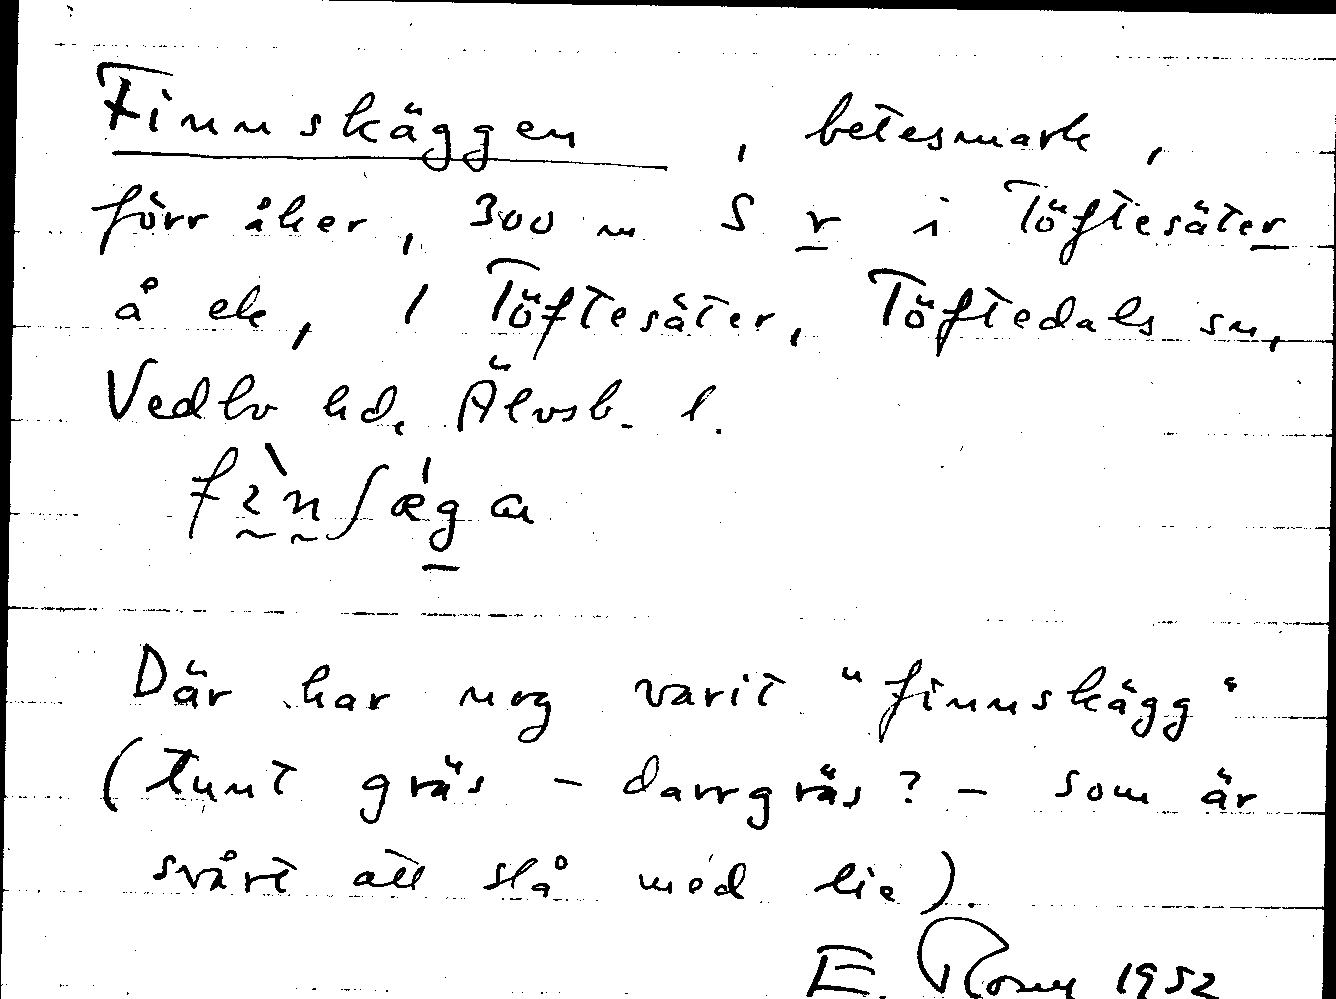 Finnskäggen, betesmark,
förr åker, 300 m S r i Töftesäter
å ek, 1 Töftesäter, Töftedals sn,
Vedbo hd, Älvsb. l.
fìnʃæ̍ga
Där har nog varit "finnskägg"
(tunt gräs - darrgräs? - som är
svårt att slå med lie).
E. 1952